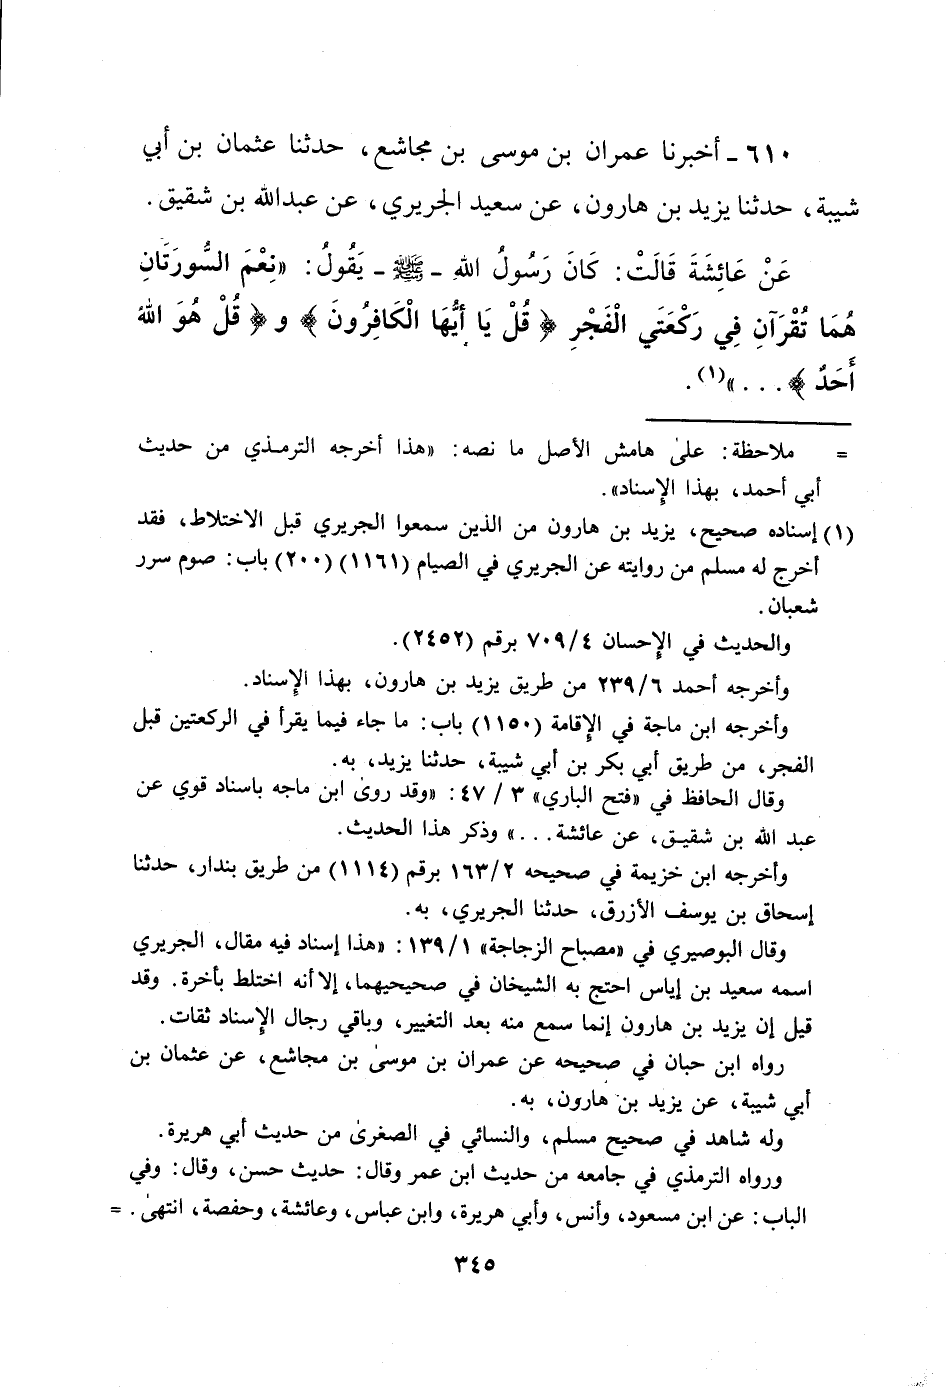 ٦١٠ ـ أخبرنا عمران بن موسى بن مجاشع، حدثنا عثمان بن أبي
شيبة، حدثنا يزيد بن هارون، عن سعيد الجريري، عن عبدالله بن شقيق.
عَنْ عَائِشَةَ قَالَتْ: كَانَ رَسُولُ اللهِ ـ ﷺ ـ يَقُولُ: «نِعْمَ السُّورَتَانِ
هُمَا تُقْرَآنِ فِي رَكْعَتَي الْفَجْرِ ﴿ قُلْ يَا أَيُّهَا الْكَافِرُونَ ﴾ و ﴿ قُلْ هُوَ اللهُ
أَحَدٌ ﴾ . . . »(١).
= ملاحظة: علىٰ هامش الأصل ما نصه: «هذا أخرجه الترمذي من حديث
أبي أحمد، بهذا الإسناد».
(١) إسناده صحيح، يزيد بن هارون من الذين سمعوا الجريري قبل الاختلاط، فقد
أخرج له مسلم من روايته عن الجريري في الصيام (١١٦١) (٢٠٠) باب: صوم سرر
شعبان.
والحديث في الإحسان ٤/ ٧٠٩ برقم (٢٤٥٢).
وأخرجه أحمد ٦/ ٢٣٩ من طريق يزيد بن هارون، بهذا الإسناد.
وأخرجه ابن ماجة في الإقامة (١١٥٠) باب: ما جاء فيما يقرأ في الركعتين قبل
الفجر، من طريق أبي بكر بن أبي شيبة، حدثنا يزيد، به.
وقال الحافظ في «فتح الباري» ٣ / ٤٧: «وقد روىٰ ابن ماجه باسناد قوي عن
عبد الله بن شقيق، عن عائشة. . .» وذكر هذا الحديث.
وأخرجه ابن خزيمة في صحيحه ٢/ ١٦٣ برقم (١١١٤) من طريق بندار، حدثنا
إسحاق بن يوسف الأزرق، حدثنا الجريري، به.
وقال البوصيري في «مصباح الزجاجة» ١/ ١٣٩: «هذا إسناد فيه مقال، الجريري
اسمه سعيد بن إياس احتج به الشيخان في صحيحيهما، إلا أنه اختلط بأخرة. وقد
قيل إن يزيد بن هارون إنما سمع منه بعد التغيير، وباقي رجال الإسناد ثقات.
رواه ابن حبان في صحيحه عن عمران بن موسىٰ بن مجاشع، عن عثمان بن
أبي شيبة، عن يزيد بن هارون، به.
وله شاهد في صحيح مسلم، والنسائي في الصغرىٰ من حديث أبي هريرة.
ورواه الترمذي في جامعه من حديث ابن عمر وقال: حديث حسن، وقال: وفي
الباب: عن ابن مسعود، وأنس، وأبي هريرة، وابن عباس، وعائشة، وحفصة، انتهىٰ. =
٣٤٥